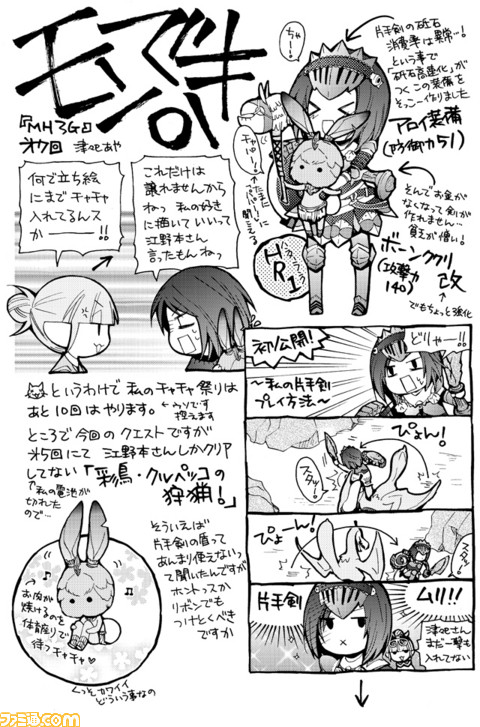 モンハン
『MH3G』
才7回 津ャセあや
ちゃー!
片手剣の砥石
消費率は異常…!
という事で
「砥石高速化」が
つくこの装備を
そっこー作りました
アロイ装備
(防御力51)
そんでお金が
なくなって剣が
作れません…
貧乏が憎い!
ボーンククリ
改
(攻撃力
140)
でもちょっと強化
HR1
これだけは
譲れませんから
ねっ 私の好き
に描いていいって
江野本さん
言ったもんねっ
何で立ち絵
にまで チャチャ
入れてるんス
かーーー!!
というわけで 私のチャチャ祭りは
あと10回はやります。
←ウソです
控えます
ところで今回の クエストですが
才5回にて 江野本さんしかクリア
してない 「彩鳥・クルペッコの
狩猟!」
↑私の電池が
切れたの
で…
そういえば
片手剣の盾って
あんまり使えないっ
て聞いたんですが
ホントっスか
リボンでも
つけとくべき
ですか
お肉が
焼けるのを
体育座りで
待つチャチャ
くっそカワイイ
どういう事なの
初公開!
どりゃー!!
~私の片手剣
プレイ方法~
ぴょん!
スタッ!
ぴょーん!
スタッ…
片手剣
ムリ!!
津ャセさん
まだ一撃も
入れてない
ファミ通.com